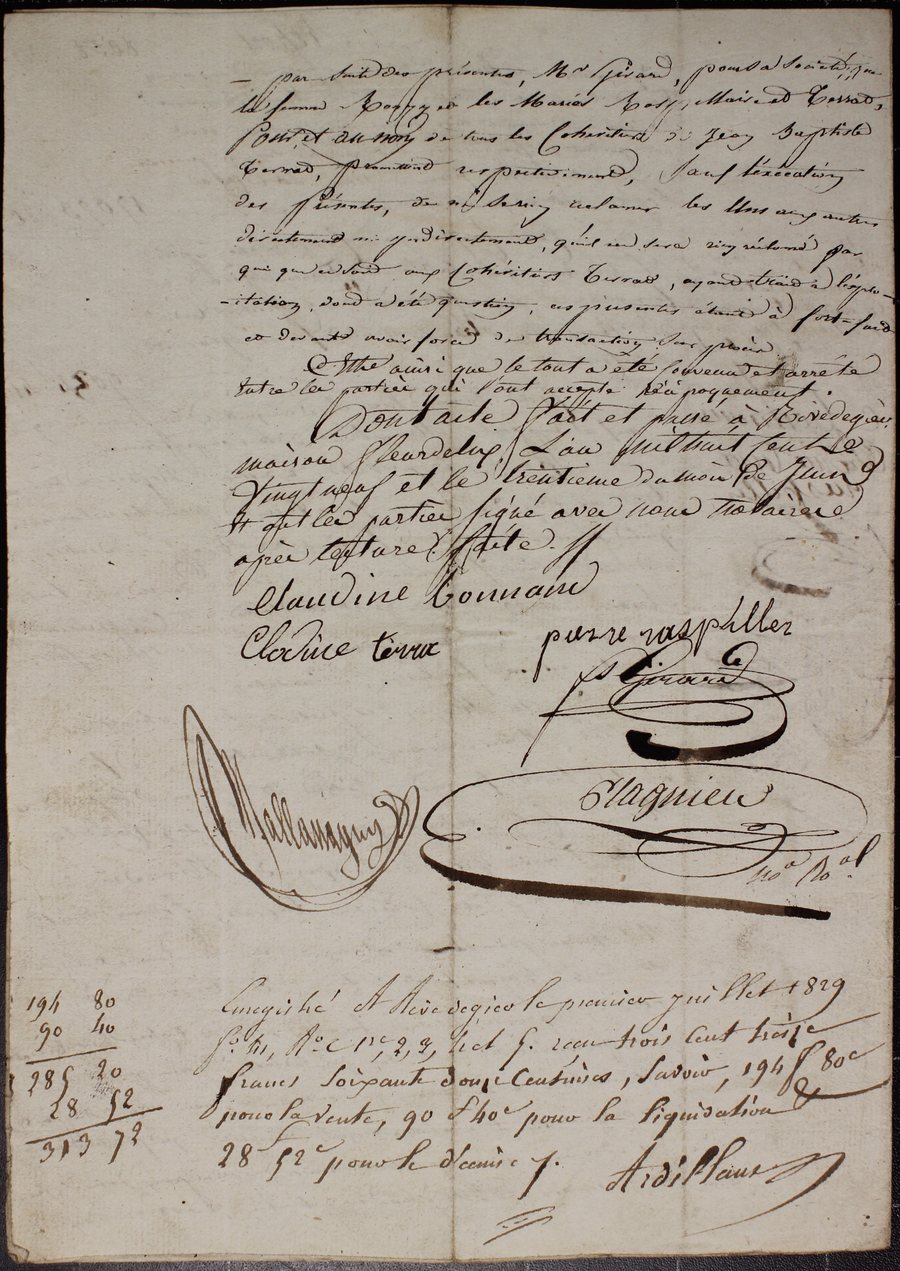 par suite des présentes, Mr Girard, pour sa société, que
la femme et les Mariés Maire et Terrad,
Pour et au nom de tous les Cohéritiers de Jean Baptiste
Terrad, promettent respectivement, sauf l'éxécution
des présentes, de ne se rien réclamer les Uns aux autres
directement ni yndirectement, qu'il ne sera rien réclamé par
qui que ce soit aux Cohéritiers Terrad, ayant trait à l'éxploi-
-itation, dont a été question, ces présentes étant à fort-fait
et devant avoir force de transaction sur procès
C'est ainsi que le tout a été convenu et arrêté
entre les parties qui l'ont accepté réciproquement.
Dont acte fait et passé à Rivedegier
maison fleurdelix L'an mil huit Cent
Vingt neuf et le trentieme du mois de Juin
et ont les parties signé avec nous notaires
après lecture faite. //
Claudine bonnand
Clodine terra
pierre raspiller
Girard
Mallassagny
Flagnieu
no.re Ro.al
Enregistré A Rivedegier le premier juillet 1829
fo. 41, Ro. c 1re, 2, 3, 4 et 5. reçu trois cent treize
francs soixante douze centimes, savoir, 194 f 80c
pour la vente, 90 f 40c pour la liquidation &
28 f 52c pour le décime /.
Ardillaus
194 80
90 40
285 20
28 52
313 72